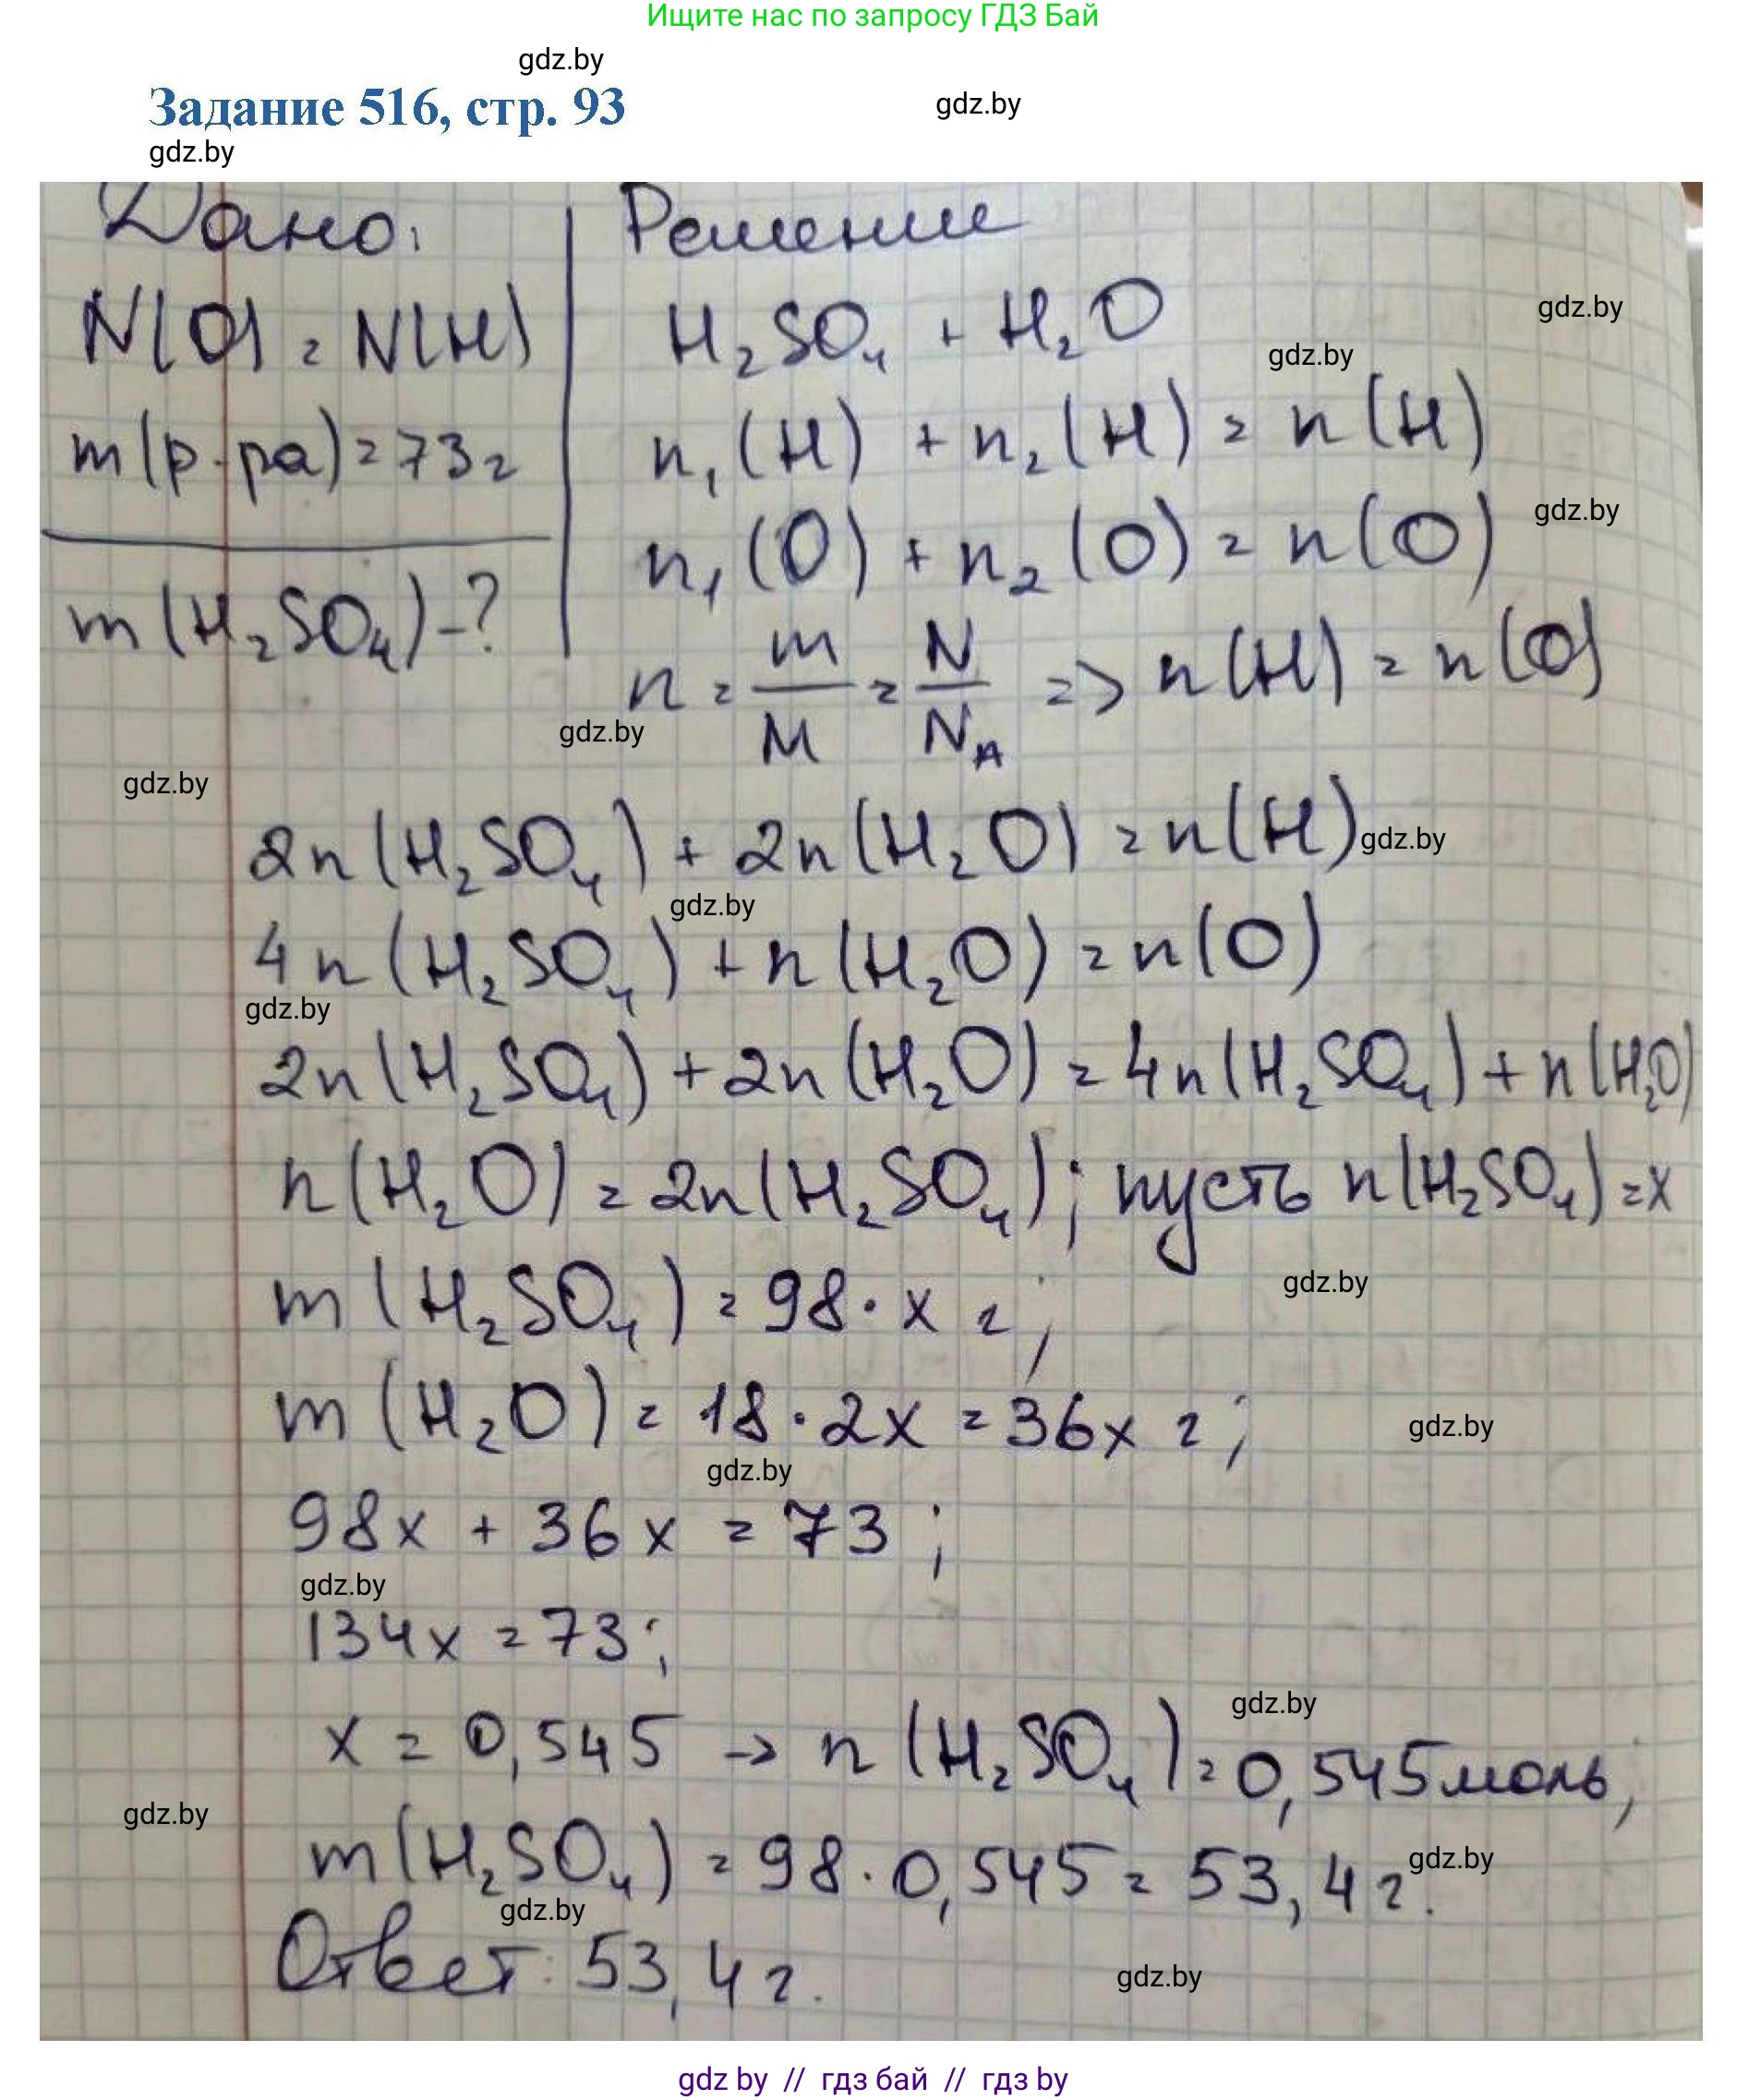 Ищите нас по запросу ГДЗ Бай
gdz.by
Задание 516, стр. 93
gdz.by
gdz.by
Дано:
Решение
N(O) = N(H)
H₂SO₄ + H₂O
gdz.by
gdz.by
m(р-ра) = 73 г
n₁(H) + n₂(H) = n(H)
gdz.by
n₁(O) + n₂(O) = n(O)
m(H₂SO₄) - ?
n = m/M = N/N_A => n(H) = n(O)
gdz.by
gdz.by
2n(H₂SO₄) + 2n(H₂O) = n(H)
gdz.by
gdz.by
4n(H₂SO₄) + n(H₂O) = n(O)
gdz.by
2n(H₂SO₄) + 2n(H₂O) = 4n(H₂SO₄) + n(H₂O)
n(H₂O) = 2n(H₂SO₄); пусть n(H₂SO₄) = x
gdz.by
m(H₂SO₄) = 98 · x г;
m(H₂O) = 18 · 2x = 36x г;
gdz.by
gdz.by
98x + 36x = 73;
gdz.by
134x = 73;
gdz.by
x = 0,545 → n(H₂SO₄) = 0,545 моль;
gdz.by
m(H₂SO₄) = 98 · 0,545 = 53,4 г.
gdz.by
gdz.by
Ответ: 53,4 г.
gdz.by
gdz by // гдз бай // гдз by